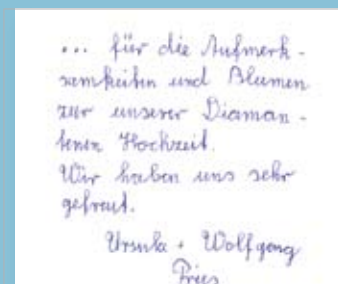 ... für die Aufmerk-
samkeiten und Blumen
zur unserer Diaman-
tenen Hochzeit.
Wir haben uns sehr
gefreut.
Ursula + Wolfgang
Pries